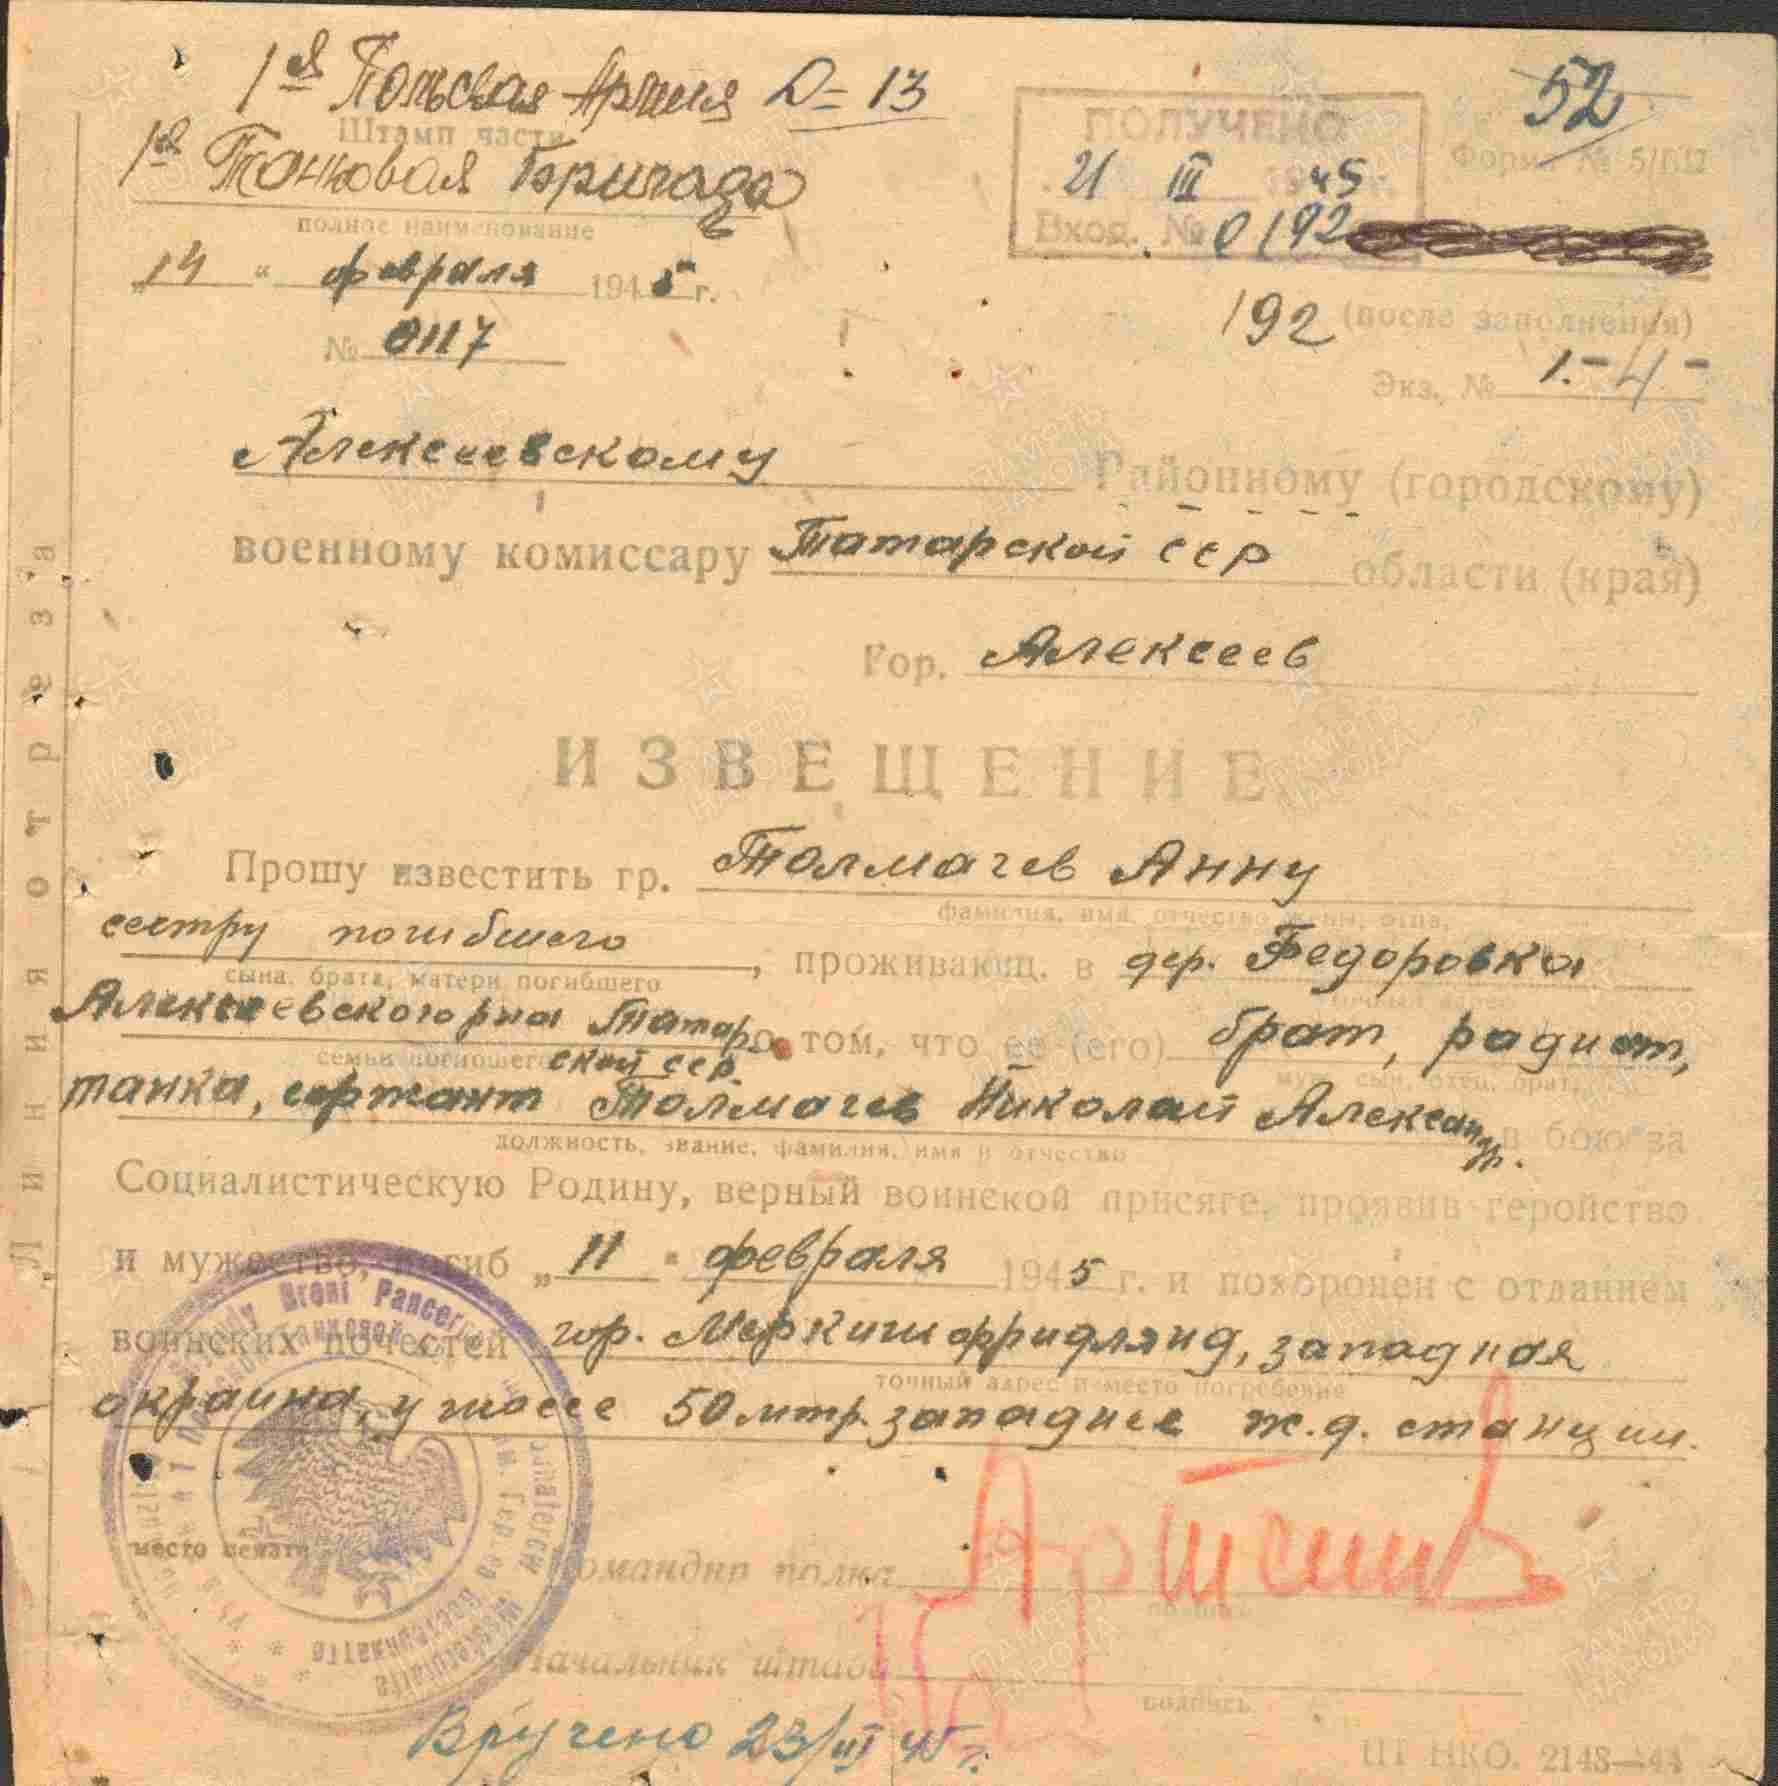 1ая Польская Армия Д-13
52
Штамп части
ПОЛУЧЕНО
Форма № 5/БП
1ая Танковая Бригада
21 III 1945
полное наименование
Вход. № 0192
„14" февраля 1945 г.
192 (после заполнения)
№ 0117
Экз. № 1.-4-
Алексеевскому Районному (городскому)
военному комиссару Татарской ССР области (края)
Гор. Алексеев
ИЗВЕЩЕНИЕ
Прошу известить гр. Толмачев Анну
фамилия, имя, отчество жены, отца,
сестру погибшего, проживающ. в дер. Федоровка
сына, брата, матери погибшего
Алексеевского рна Татарской ССР. о том, что ее (его) брат, радист,
семьи погибшего
муж, сын, отец, брат,
танка, сержант Толмачев Николай Александр. в бою за
должность, звание, фамилия, имя и отчество
Социалистическую Родину, верный воинской присяге, проявив геройство
и мужество, погиб „11" февраля 1945 г. и похоронен с отданием
воинских почестей гор. Меркишфридлянд, западная
точный адрес и место погребение
окраина, у шоссе 50 мтр. западнее ж.д. станции.
место печати
Командир полка
подпись
Начальник штаба
подпись
Вручено 23/III 45 г.
ШТ НКО. 2148—44
Линия отреза
Broni Pancernej
Westerplatte
Вестерплатте